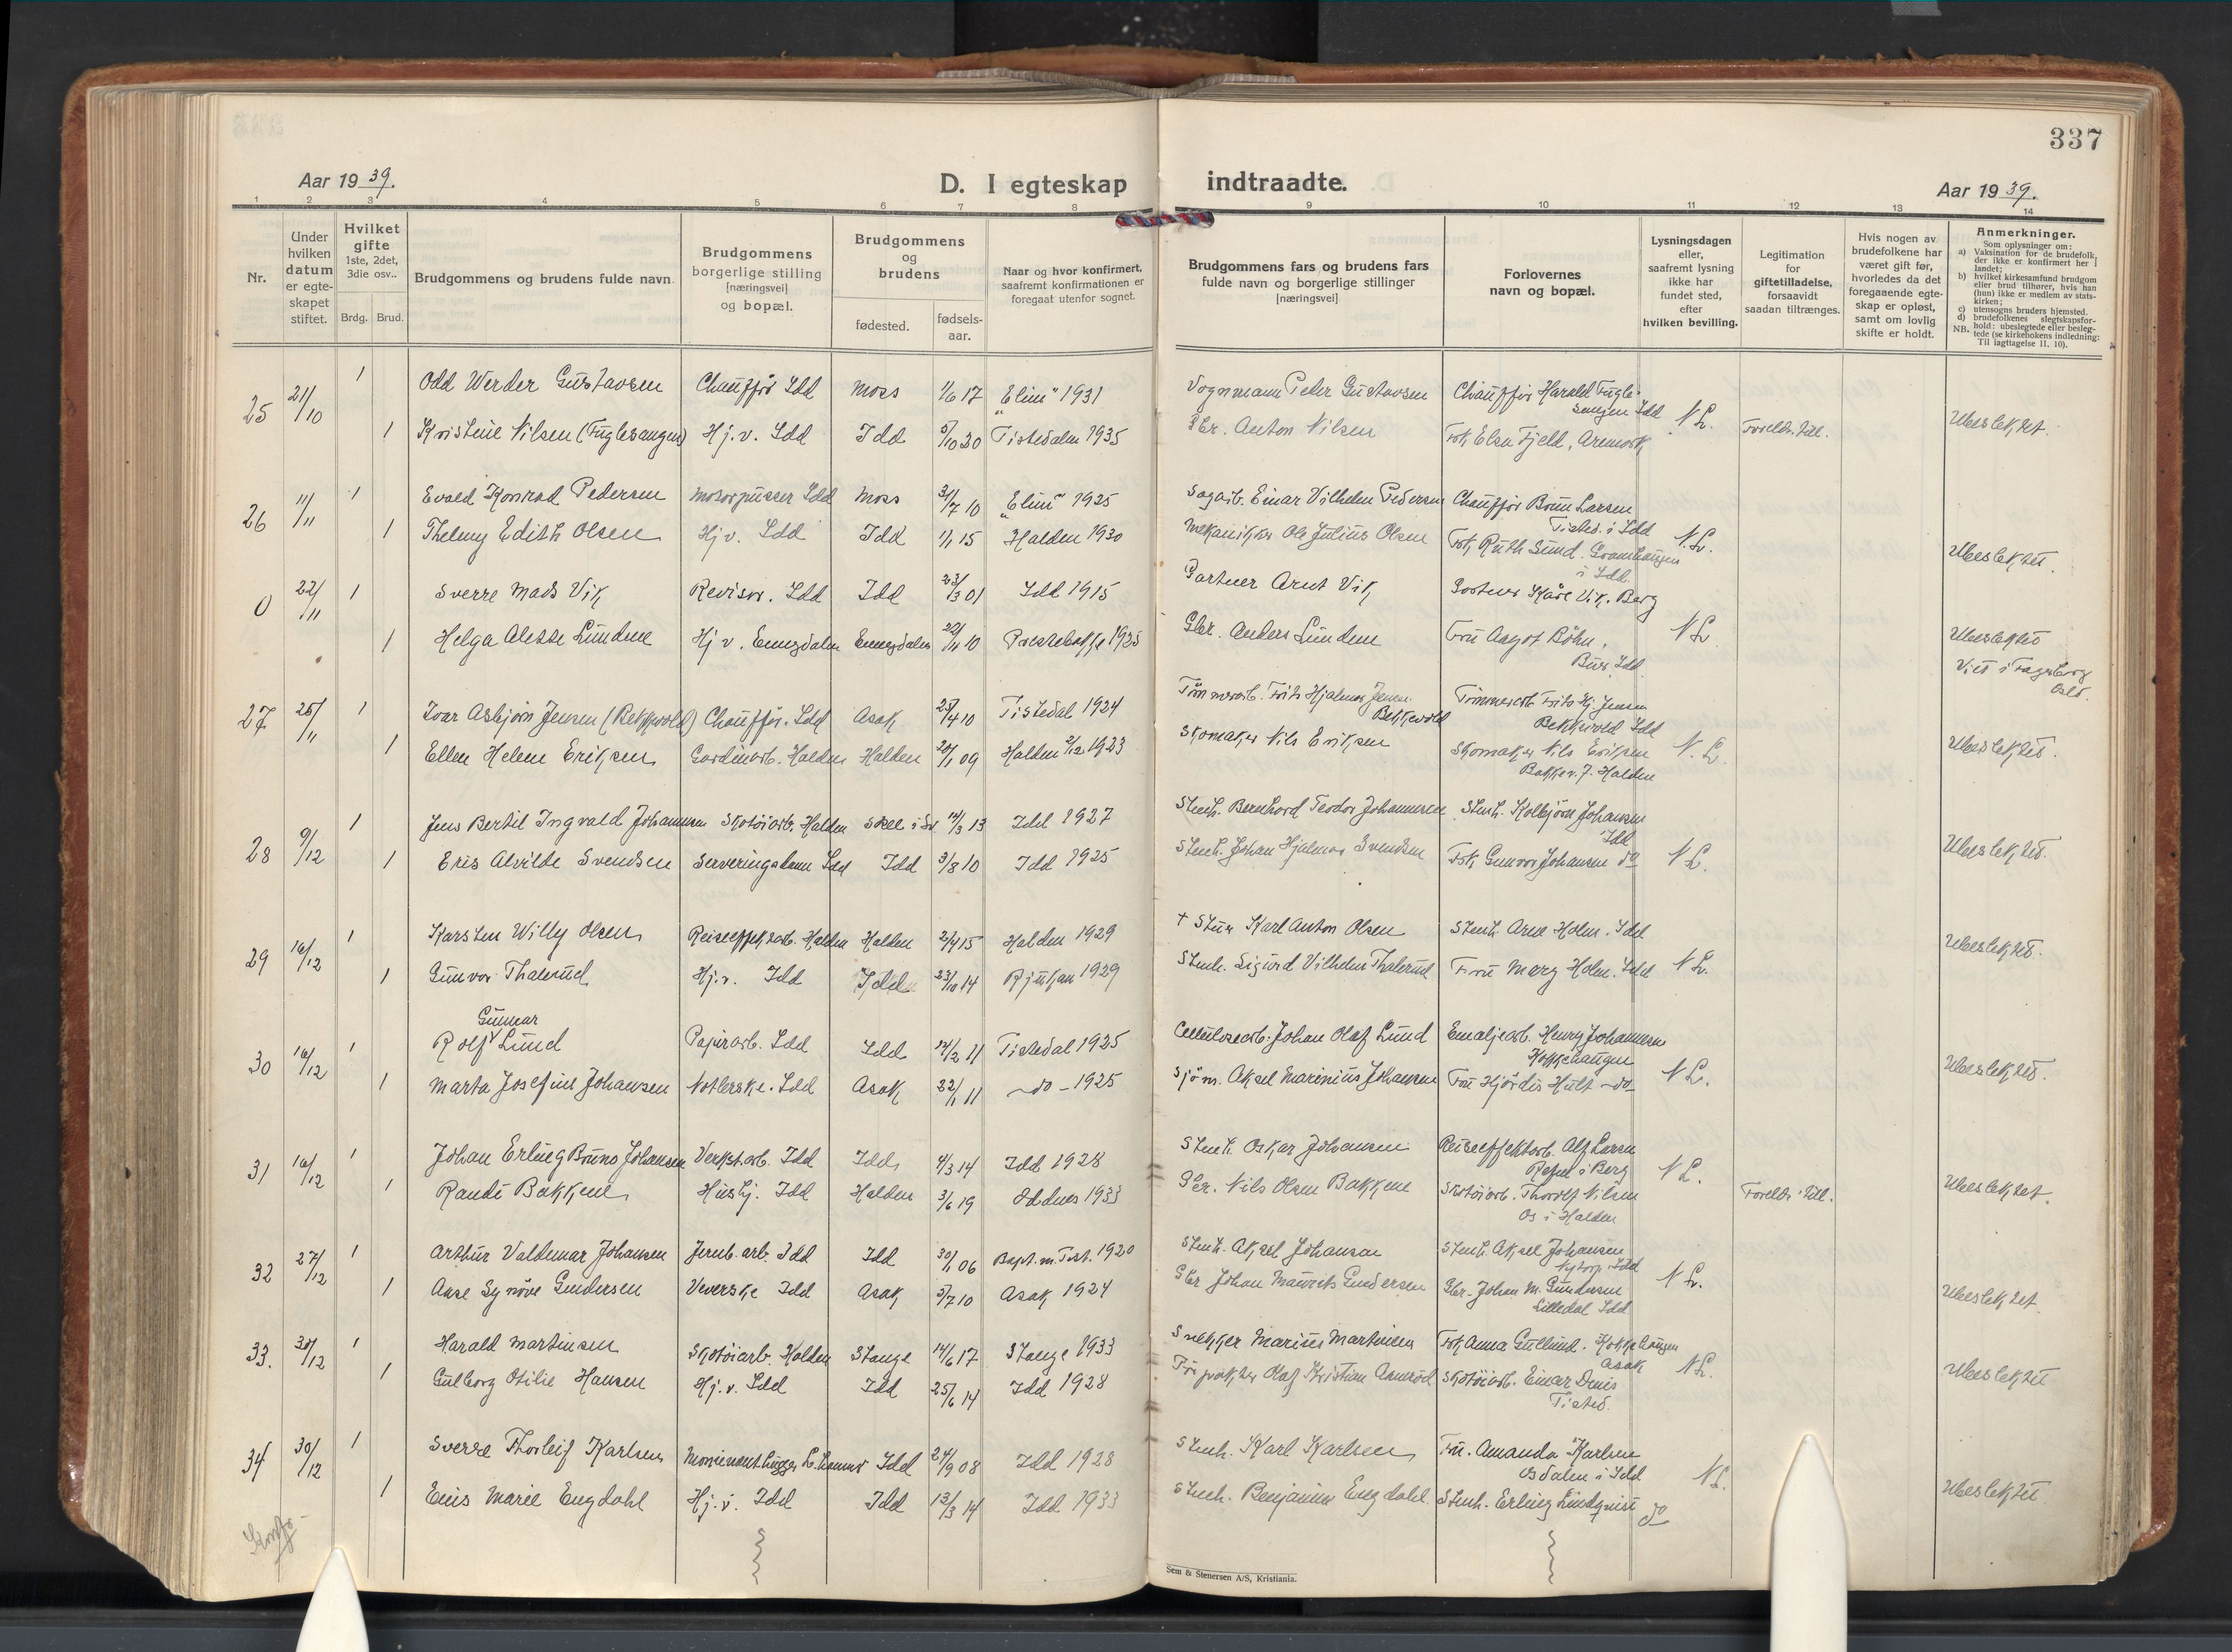 337
Aar 1939.
D. I egteskap indtraadte.
Aar 1939.
1 2 3 4 5 6 7 8 9 10 11 12 13 14
Nr.
Under hvilken datum er egteskapet stiftet.
Hvilket gifte 1ste, 2det, 3die osv..
Brdg. Brud.
Brudgommens og brudens fulde navn.
Brudgommens borgerlige stilling [næringsvei] og bopæl.
Brudgommens og brudens
fødested. fødsels-aar.
Naar og hvor konfirmert, saafremt konfirmationen er foregaat utenfor sognet.
Brudgommens fars og brudens fars fulde navn og borgerlige stillinger [næringsvei]
Forlovernes navn og bopæl.
Lysningsdagen eller, saafremt lysning ikke har fundet sted, efter hvilken bevilling.
Legitimation for giftetilladelse, forsaavidt saadan tiltrænges.
Hvis nogen av brudefolkene har været gift før, hvorledes da det foregaaende egteskap er opløst, samt om lovlig skifte er holdt.
Anmerkninger.
Som oplysninger om:
a) Vaksination for de brudefolk, der ikke er konfirmert her i landet;
b) hvilket kirkesamfund brudgom eller brud tilhører, hvis han (hun) ikke er medlem av statskirken;
c) utensogns bruders hjemsted.
d) brudefolkenes slegtskapsforhold: ubeslegtede eller beslegtede (se kirkebokens indledning: Til iagttagelse II. 10).
NB.
25 21/10 1 Odd Werder Gustavsen Chauffør Idd Moss 1/6 17 "Elim" 1931 Vognmann Peter Gustavsen Chauffør Harald Fuglesangen Idd N.L. Ubeslektet.
1 Kristine Nilsen (Fuglesangen) Hj.v. Idd Idd 5/10 20 Tistedalen 1935 Gbr. Anton Nilsen Frk Elsa Fjeld, Aremark Foreldr. till.
26 11/11 1 Evald Konrad Pedersen Motorpusser Idd Moss 31/7 10 "Elim" 1925 Sagarb. Einar Vilhelm Pedersen Chauffør Larsen Tisted. i Idd N.L. Ubeslektet.
1 Thelmy Edith Olsen Hj.v. Idd Idd 1/1 15 Halden 1930 Mekaniker Ole Julius Olsen Frk Ruth Sund. i Idd
0 22/11 1 Sverre Mads Vik Revisor. Idd Idd 23/3 01 Idd 1915 Gartner Arnt Vik Gartner Kåre Vik. Berg N.L. Ubeslektet
1 Helga Lundene Hj.v. Enningdalen Enningdalen 22/11 10 Prestebakke 1925 Gbr. Anders Lundene Fru Aagot Böhn, Idd. Viet i Fagerborg Oslo.
27 25/11 1 Ivar Asbjørn Jensen (Bekkevold) Chauffør. Idd Asak 25/4 10 Tistedal 1924 Tömmerarb. Frits Hjalmar Jensen Bekkevold Tömmerarb. Frits Hj. Jensen Bekkevold Idd N.L. Ubeslektet.
1 Ellen Helene Eriksen Gardinarb. Halden Halden 20/1 09 Halden 2/12 1923 Skomaker Nils Eriksen Skomaker Nils Eriksen Bakkev. 7. Halden
28 9/12 1 Jens Bertil Ingvald Johannesen Skotøiarb. Halden Skee i Sv. 12/3 13 Idd 1927 Stenh. Bernhard Teodor Johannesen Stenh. Kolbjörn Johansen Idd N.L. Ubeslektet.
1 Eris Alvilde Svendsen Serveringsdame Idd Idd 3/8 10 Idd 1925 Stenh. Johan Hjalmar Svendsen Frk Gunvor Johansen do
29 16/12 1 Karsten Willy Olsen Reiseeffektarb. Halden Halden 2/4 15 Halden 1929 + Stuer Karl Anton Olsen Stenh. Arne Holm. Idd N.L. Ubeslektet.
1 Gunvor Thalerud Hj.v. Idd Idd 23/10 14 Rjukan 1929 Stenh. Sigurd Vilhelm Thalerud Fru Merg Holm. Idd
30 16/12 1 Rolf Gunnar Lund Papirarb. Idd Idd 12/2 11 Tistedal 1925 Cellulosearb. Johan Olaf Lund Emaljearb. Henry Johannesen Kokkehaugen N.L. Ubeslektet.
1 Marta Josefine Johansen Noterske. Idd Asak 22/1 11 - do - 1925 Sjöm. Aksel Marinius Johansen Fru Hjördis Hult -do-
31 16/12 1 Johan Erling Bruno Johansen Verkst.arb. Idd Idd 4/3 14 Idd 1928 Stenh. Oskar Johansen Reiseeffektarb. Alf Larsen i Berg N.L. Ubeslektet.
1 Randi Bakkene Hushj. Idd Halden 3/6 19 Oddnes 1933 Gbr. Nils Olsen Bakkene Skotøiarb. Thorolf Nilsen Os i Halden Foreldr. till.
32 27/12 1 Arthur Valdemar Johansen Jernb. arb. Idd Idd 30/1 06 Bapt. m. Tist. 1920 Stenh. Aksel Johansen Stenh. Aksel Johansen Nytorp Idd N.L. Ubeslektet
1 Aase Synøve Gundersen Veverske Idd Asak 5/7 10 Asak 1924 Gbr Johan Mauritz Gundersen Gbr. Johan M. Gundersen Lilledal Idd
33. 30/12 1 Harald Martinsen Skotøiarb. Halden Stange 14/6 17 Stange 1933 Snekker Marius Martinsen Frk Anna Gullund. Kokkehaugen Asak N.L. Ubeslektet
1 Gulborg Otilie Hansen Hj.v. Idd Idd 25/6 14 Idd 1928 Olaf Kristian Skotøiarb. Einar Denis Tisted.
34 30/12 1 Sverre Thorleif Karlsen Monumenthugger Idd 24/9 08 Idd 1928 Stenh. Karl Karlsen Fru. Amanda Karlsen Osdalen i Idd N.L. Ubeslektet
1 Enis Marie Engdahl Hj.v. Idd Idd 13/3 14 Idd 1933 Stenh. Benjamin Engdahl Stenh. Erling Lindqvist do
Sem & Stenersen A/S, Kristiania.